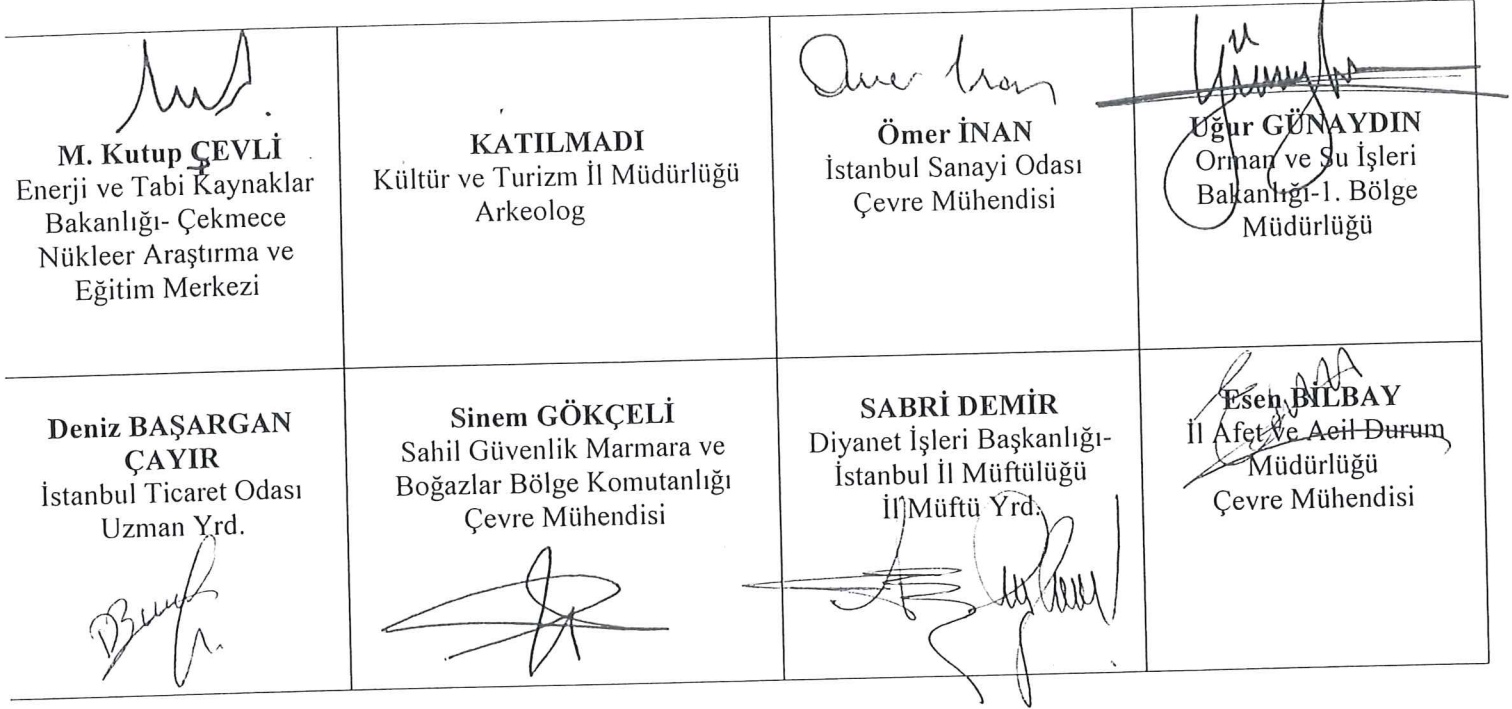 M. Kutup ÇEVLİ
Enerji ve Tabi Kaynaklar
Bakanlığı- Çekmece
Nükleer Araştırma ve
Eğitim Merkezi
KATILMADI
Kültür ve Turizm İl Müdürlüğü
Arkeolog
Ömer İnan
Ömer İNAN
İstanbul Sanayi Odası
Çevre Mühendisi
Uğur GÜNAYDIN
Orman ve Su İşleri
Bakanlığı-1. Bölge
Müdürlüğü
Deniz BAŞARGAN
ÇAYIR
İstanbul Ticaret Odası
Uzman Yrd.
Sinem GÖKÇELİ
Sahil Güvenlik Marmara ve
Boğazlar Bölge Komutanlığı
Çevre Mühendisi
SABRİ DEMİR
Diyanet İşleri Başkanlığı-
İstanbul İl Müftülüğü
İl Müftü Yrd.
Esen BİLBAY
İl Afet ve Acil Durum
Müdürlüğü
Çevre Mühendisi